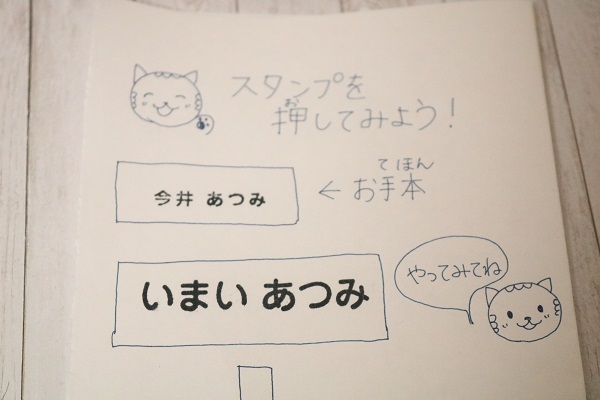 スタンプを
押してみよう!
お
今井 あつみ
← お手本
てほん
いまい あつみ
やってみてね